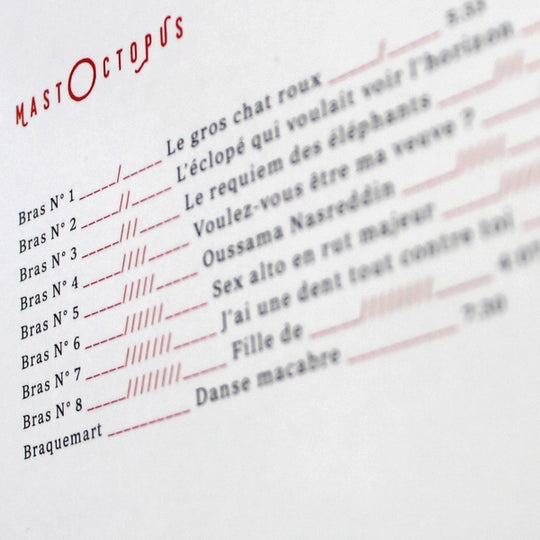 MASTOCTOPUS
Bras N° 1 _____/_____ Le gros chat roux _____/_____ 5:55
Bras N° 2 _____//_____ L'éclopé qui voulait voir l'horizon
Bras N° 3 _____///_____ Le requiem des éléphants _____///
Bras N° 4 _____////_____ Voulez-vous être ma veuve ?
Bras N° 5 _____/////_____ Oussama Nasreddin _____/////
Bras N° 6 _____//////_____ Sex alto en rut majeur _____//////
Bras N° 7 _____///////_____ J'ai une dent tout contre toi
Bras N° 8 _____////////_____ Fille de _____////////_____
Braquemart __________ Danse macabre __________ 7:30